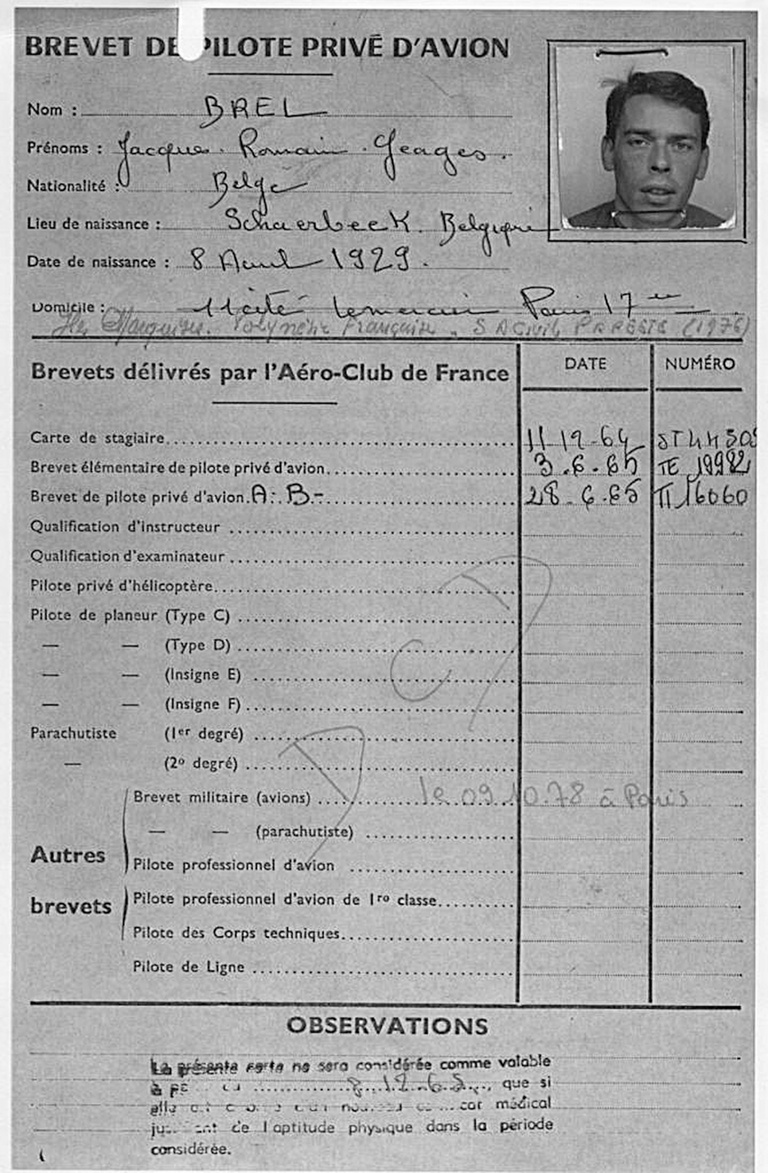 BREVET DE PILOTE PRIVÉ D'AVION
Nom : BREL
Prénoms : Jacques. Romain. Georges.
Nationalité : Belge
Lieu de naissance : Schaerbeek. Belgique
Date de naissance : 8 Avril 1929.
Domicile : 11 cité Lemercier Paris 17
Iles Marquises. Polynésie Française. (1976)
Brevets délivrés par l'Aéro-Club de France DATE NUMÉRO
Carte de stagiaire 11-12-64
Brevet élémentaire de pilote privé d'avion 3.6.65 TE 19982
Brevet de pilote privé d'avion. A: B.- 28-6-65 TT 16060
Qualification d'instructeur
Qualification d'examinateur
Pilote privé d'hélicoptère
Pilote de planeur (Type C)
— — (Type D)
— — (Insigne E)
— — (Insigne F)
Parachutiste (1er degré)
— (2o degré)
DCD
Autres brevets
Brevet militaire (avions) le 09.10.78 à Paris
— — (parachutiste)
Pilote professionnel d'avion
Pilote professionnel d'avion de 1re classe
Pilote des Corps techniques
Pilote de Ligne
OBSERVATIONS
La présente carte ne sera considérée comme valable
que si
médical
de l'aptitude physique dans la période
considérée.